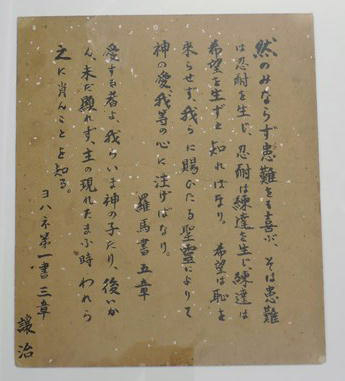 然のみならず患難をも喜ぶ、そは患難
は忍耐を生じ、忍耐は練達を生じ、練達は
希望を生ずと知ればなり。希望は恥を
来らせず、我らに賜ひたる聖靈によりて
神の愛、我等の心に注げばなり。
羅馬書五章
愛する者よ、我らいま神の子たり、後いか
ん、未だ顯れず、主の現れたまふ時われら
之に肖んことを知る。
ヨハネ第一書三章
讓治